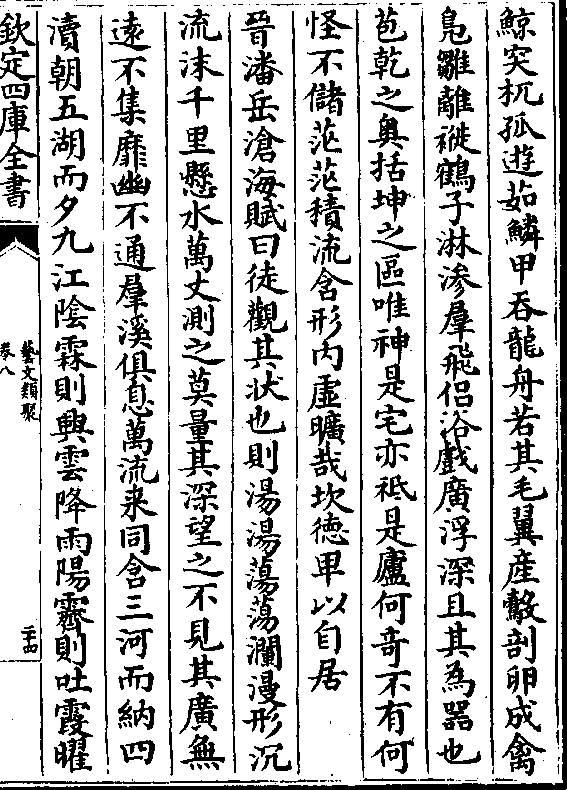 鯨突杌孤遊茹鱗甲吞龍舟若其毛翼産鷇剖卵成禽
鳬雛離褷鶴子淋滲羣飛侣浴戲廣浮深且其為器也
苞乾之奥括坤之區唯神是宅亦祗是廬何奇不有何
怪不儲茫茫積流含形内虚曠哉坎徳卑以自居
晉潘岳滄海賦曰徒觀其状也則湯湯蕩蕩瀾漫形沉
流沫千里懸水萬丈測之莫量其深望之不見其廣無
逺不集靡幽不通羣溪俱息萬流来同含三河而納四
瀆朝五湖而夕九江陰霖則興雲降雨陽霽則吐霞曜
欽定四庫全書
藝文類聚
卷八
二十四